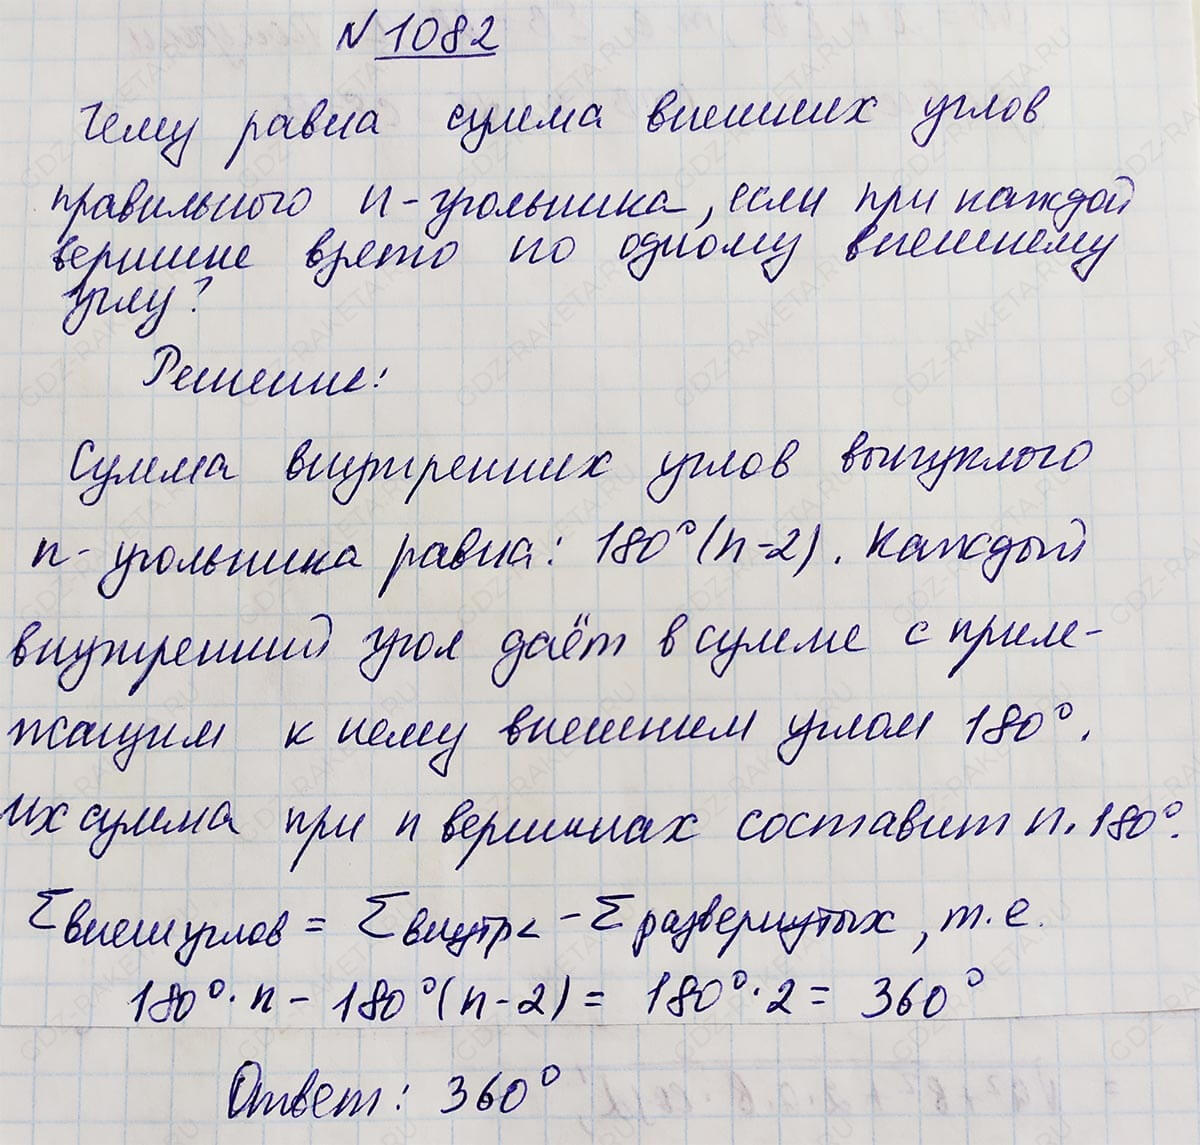 № 1082
Чему равна сумма внешних углов
правильного n-угольника, если при каждой
вершине взято по одному внешнему
углу?
Решение:
Сумма внутренних углов выпуклого
n-угольника равна: 180°(n-2). Каждый
внутренний угол даёт в сумме с приле-
жащим к нему внешним углом 180°.
Их сумма при n вершинах составит n·180°.
Σвнеш углов = Σвнутр∠ - Σразвернутых, т.е.
180°·n - 180°(n-2) = 180°·2 = 360°
Ответ: 360°
GDZ-RAKETA.RU